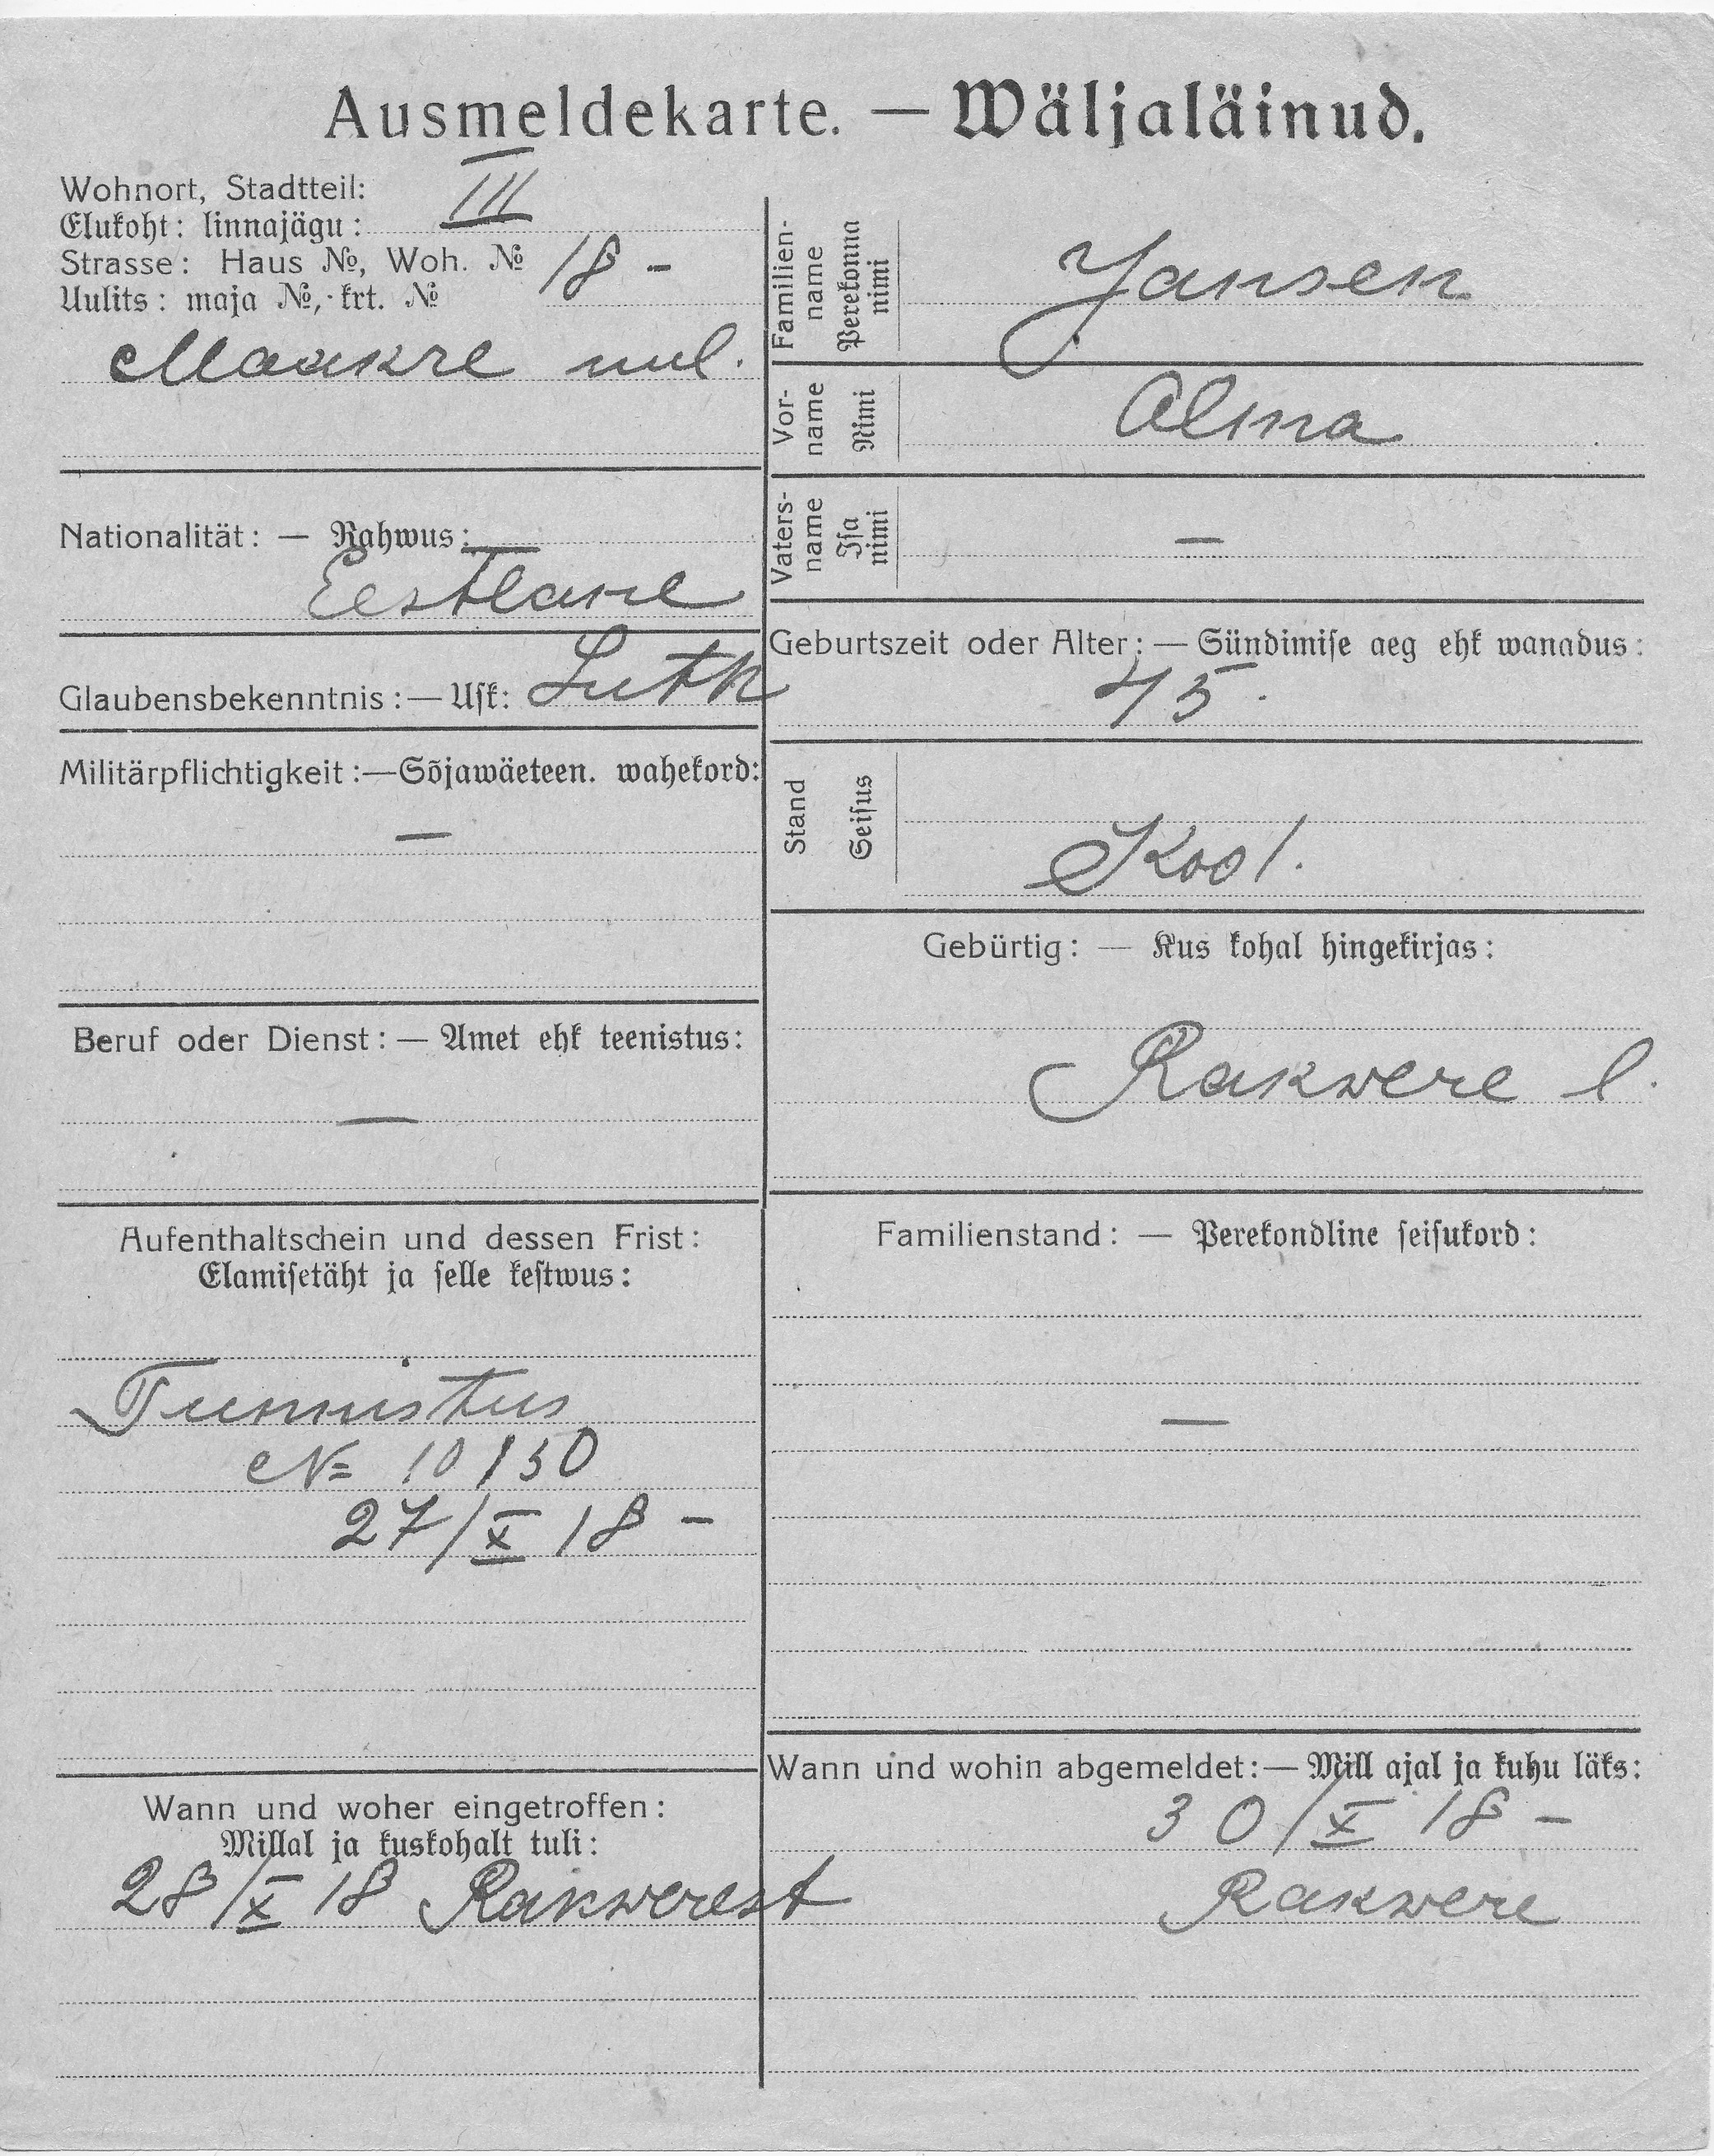 Ausmeldekarte. — Wäljaläinud.
Wohnort, Stadtteil:
Elukoht: linnajägu: III
Strasse: Haus №, Woh. № 18 –
Uulits: maja №, krt. №
Maakre uul.
Nationalität: — Rahwus:
Eestlane
Glaubensbekenntnis: — Usk: Luth
Militärpflichtigkeit: — Sõjawäeteen. wahekord:
—
Beruf oder Dienst: — Amet ehk teenistus:
—
Aufenthaltschein und dessen Frist:
Elamisetäht ja selle kestwus:
Tunnistus
№ 10130
27/X 18 –
Wann und woher eingetroffen:
Millal ja kuskohalt tuli:
28/X 18 Rakwerest
Familien-
name
Perekonna
nimi
Jansen
Vor-
name
Nimi
Alma
Vaters-
name
Isa
nimi
—
Geburtszeit oder Alter: — Sündimise aeg ehk wanadus:
45.
Stand
Seisus
Kool.
Gebürtig: — Kus kohal hingekirjas:
Rakwere l.
Familienstand: — Perekondline seisukord:
—
Wann und wohin abgemeldet: — Mill ajal ja kuhu läks:
30/X 18 –
Rakwere